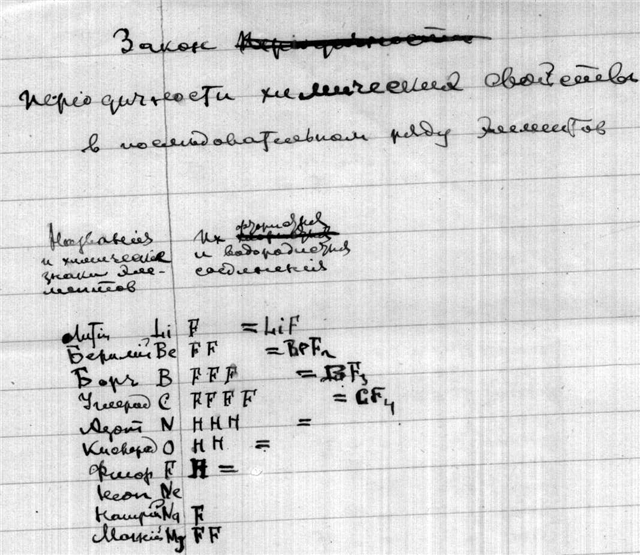 Закон периодичности
періодичности химических свойствъ
в последовательном ряду элементов
Названія
и химическіе
знаки эле-
ментов
Их фтористыя
и водородистыя
соединенія
Литій Li F = LiF
Берилій Be F F = BeF2
Боръ B F F F = BF3
Углерод C F F F F = CF4
Азот N H H H =
Кислород O H H =
Фтор F H =
Неон Ne
Натрій Na F
Магній Mg F F